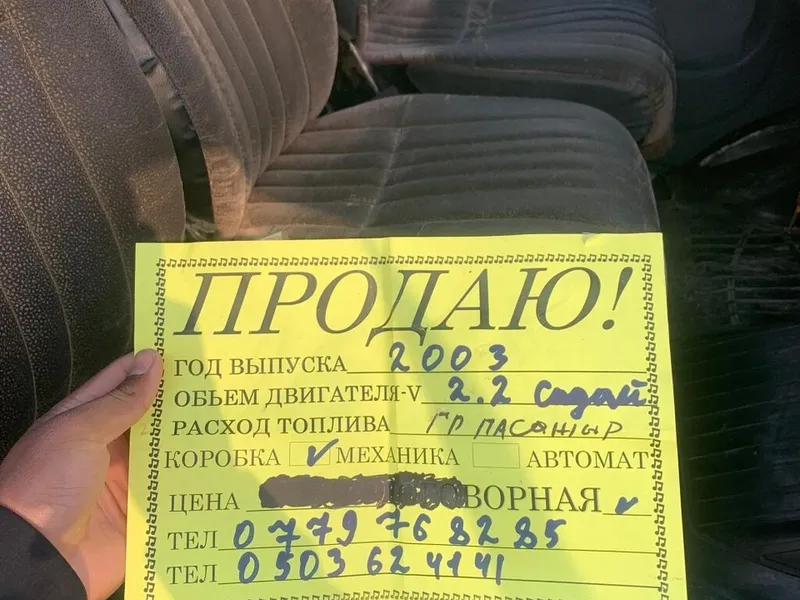 ПРОДАЮ!
ГОД ВЫПУСКА 2003
ОБЬЕМ ДВИГАТЕЛЯ-V 2.2
РАСХОД ТОПЛИВА ГР ПАСАЖИР
КОРОБКА ✓ МЕХАНИКА АВТОМАТ
ЦЕНА ВОРНАЯ ✓
ТЕЛ 0779 76 82 85
ТЕЛ 0503 62 41 41